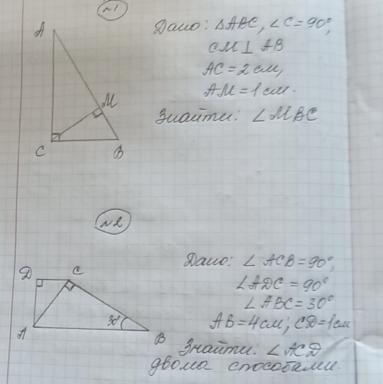 №1
Дано: ΔABC, ∠C=90°,
CM⊥AB
AC=2см,
AM=1см.
Знайти: ∠MBC
A
M
C
B
№2
Дано: ∠ACB=90°,
∠ADC=90°
∠ABC=30°
AB=4см; CD=1см
Знайти: ∠ACD
двома способами.
D
C
A
30°
B